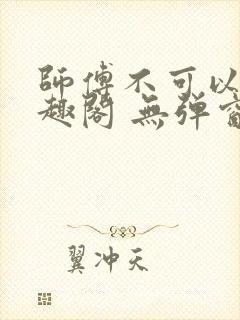 師傅不可以
趣閣 無弹
翼冲天